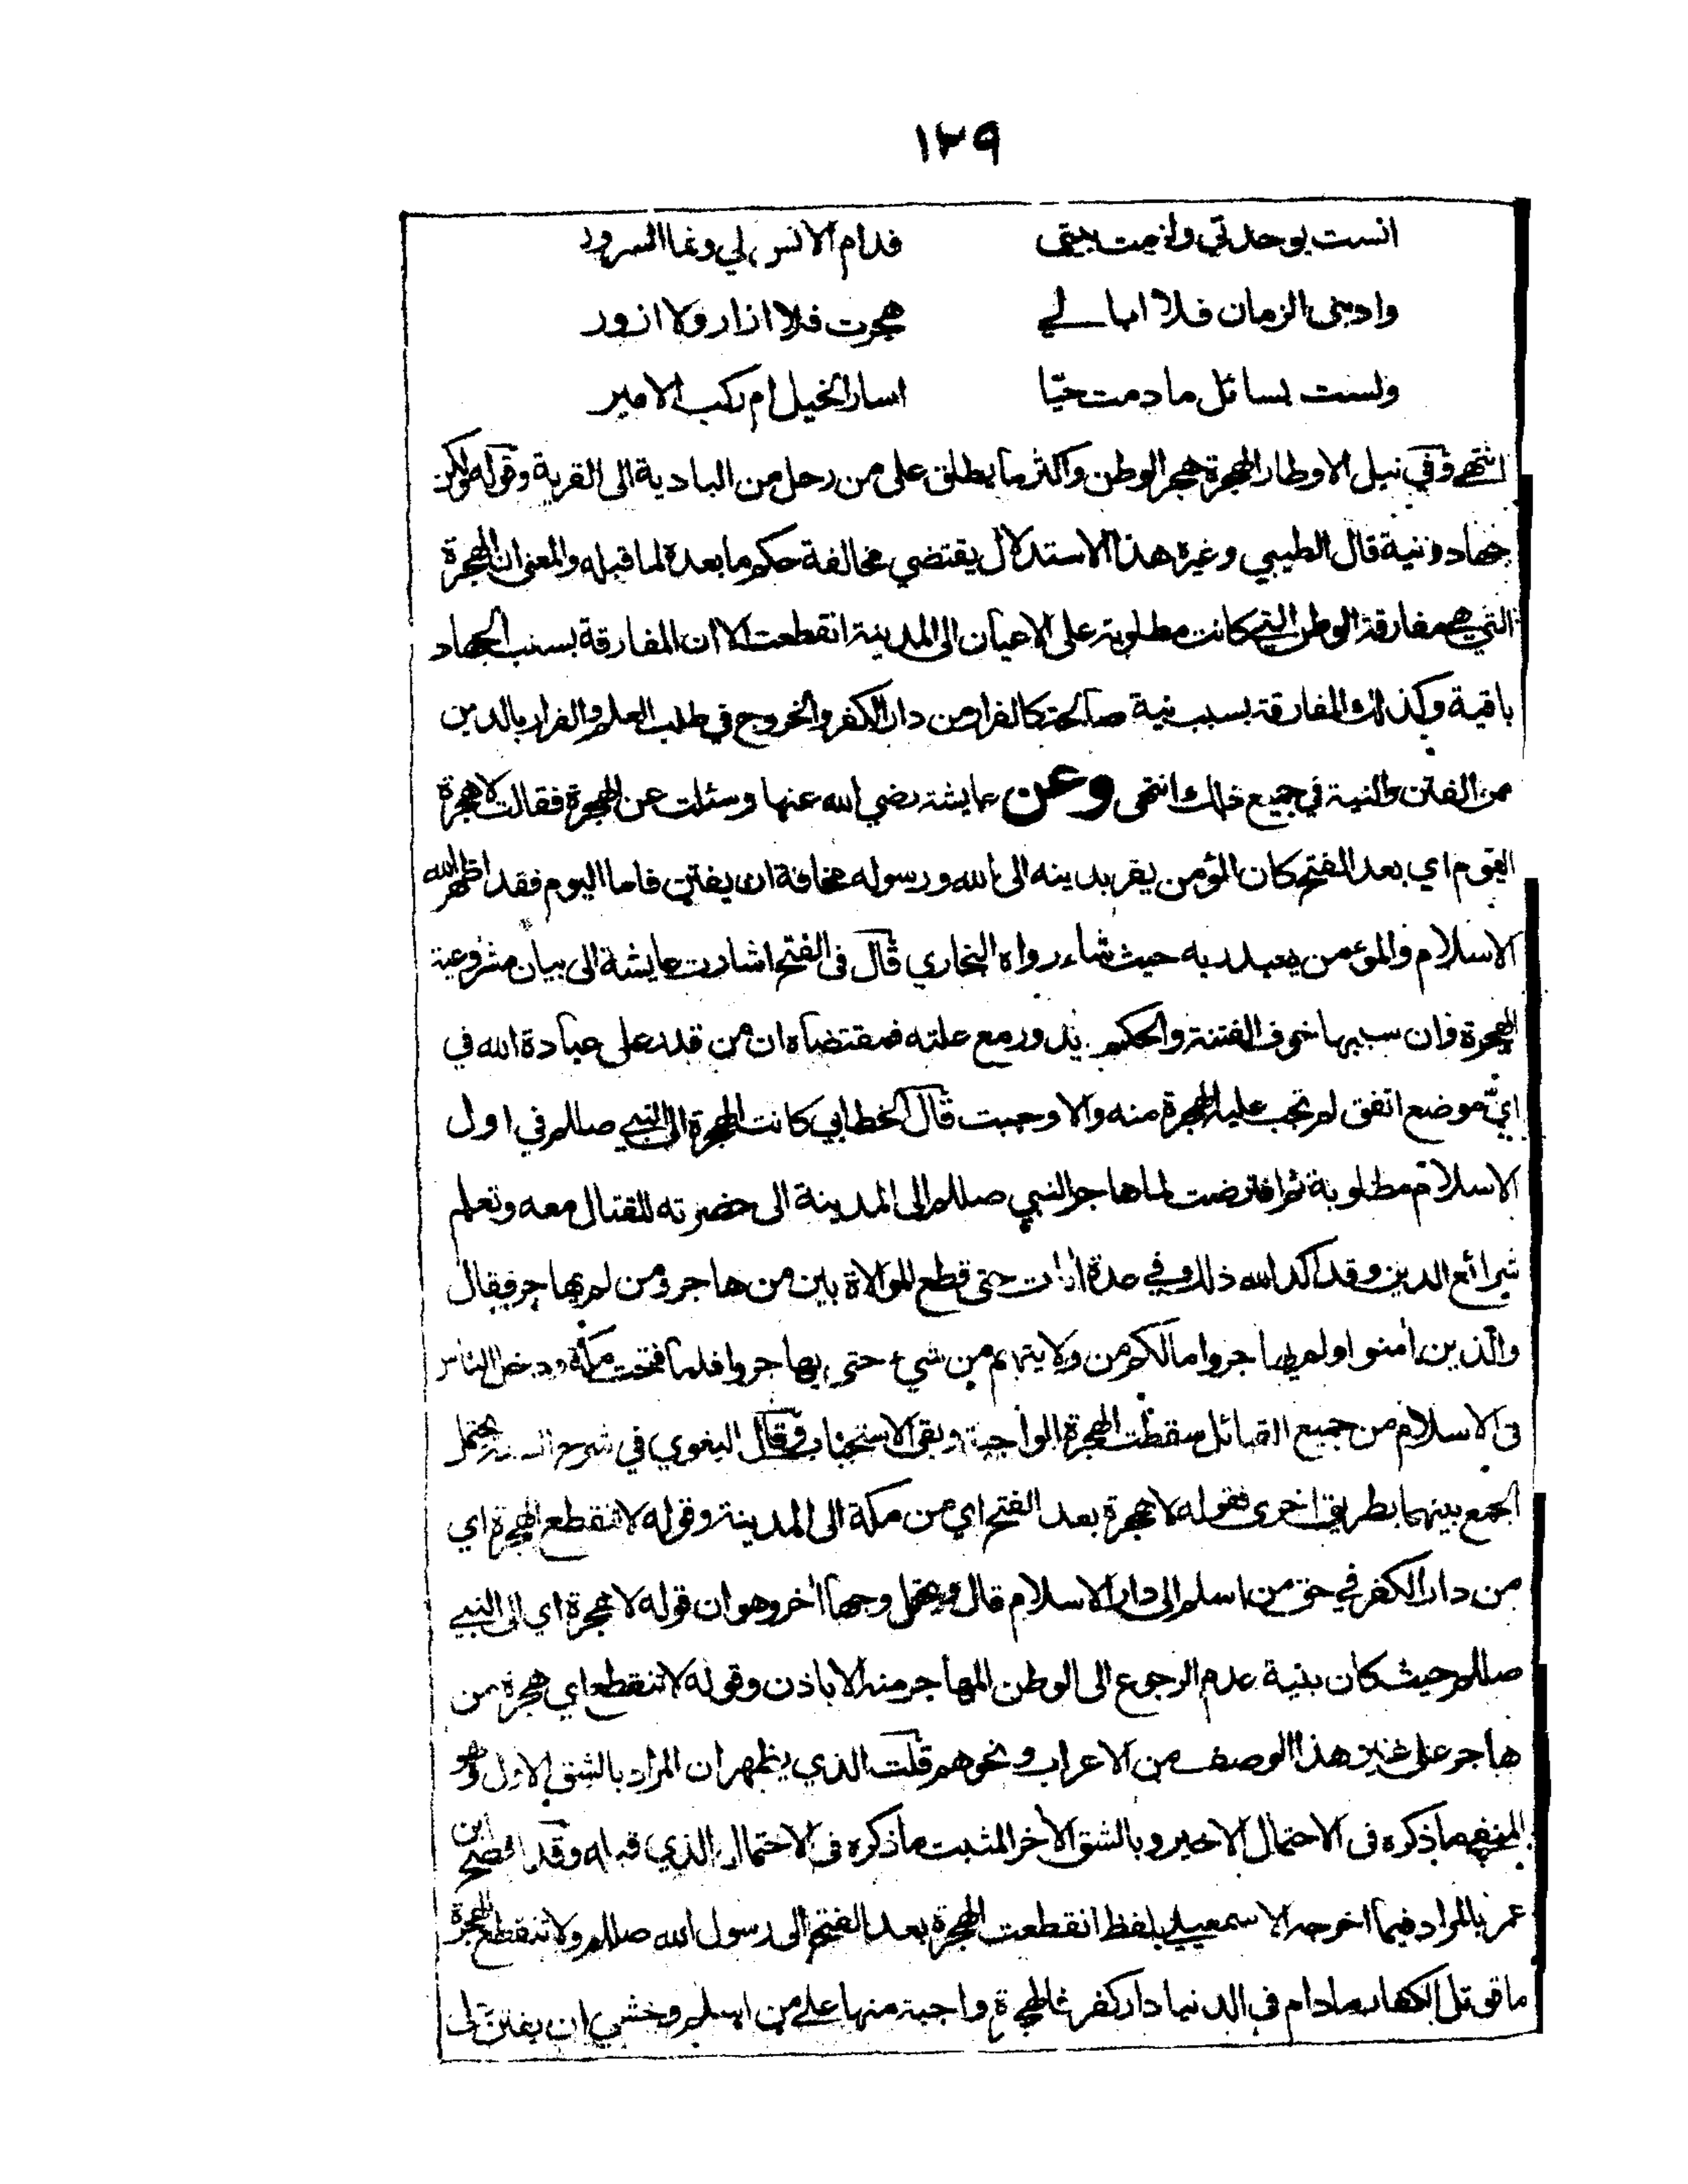 ١٢٩
انست بوحدتي ولزمت بيتي فدام الانس لي ونما السرور
وادبني الزمان فلا ابالي هجرت فلا ازار ولا ازور
ولست بسائل ما دمت حيّا اسار الخيل ام ركب الامير
انتهى وفي نيل الاوطار الهجرة هجر الوطن واكثر ما يطلق على من رحل من البادية الى القرية وقوله ولكن
جهاد ونية قال الطيبي وغيره هذا الاستدلال يقتضي مخالفة حكم ما بعده لما قبله والمعنى ان الهجرة
التي هي مفارقة الوطن التي كانت مطلوبة على الاعيان الى المدينة انقطعت الا ان المفارقة بسبب الجهاد
باقية وكذلك المفارقة بسبب نية صالحة كالفرار من دار الكفر والخروج في طلب العلم والفرار بالدين
من الفتن والنية في جميع ذلك انتهى وعن عايشة رضي الله عنها وسئلت عن الهجرة فقالت لا هجرة
اليوم اي بعد الفتح كان المؤمن يفر بدينه الى الله ورسوله مخافة ان يفتن فاما اليوم فقد اظهر الله
الاسلام والمؤمن يعبد ربه حيث شاء رواه البخاري قال في الفتح اشارت عايشة الى بيان مشروعية
الهجرة وان سببها خوف الفتنة والحكم يدور مع علته فمقتضاه ان من قدر على عبادة الله في
ايّ موضع اتفق لم تجب عليه الهجرة منه والا وجبت قال الخطابي كانت الهجرة الى النبي صللم في اول
الاسلام مطلوبة ثم افترضت لما هاجر النبي صللم الى المدينة الى حضرته للقتال معه وتعلم
شرائع الدين وقد اكد الله ذلك في عدة آيات حتى قطع الموالاة بين من هاجر ومن لم يهاجر فقال
والذين امنوا ولم يهاجروا مالكم من ولايتهم من شيء حتى يهاجروا فلما فتحت مكة ودخل الناس
في الاسلام من جميع القبائل سقطت الهجرة الواجبة وبقي الاستحباب وقال البغوي في شرح السنة يحتمل
الجمع بينهما بطريق اخرى فقوله لا هجرة بعد الفتح اي من مكة الى المدينة وقوله لا تنقطع الهجرة اي
من دار الكفر في حق من اسلم الى دار الاسلام قال ويحتمل وجها اخر وهو ان قوله لا هجرة اي الى النبي
صللم حيث كان بنية عدم الرجوع الى الوطن المهاجر منه الا باذن وقوله لا تنقطع اي هجرة من
هاجر على غير هذا الوصف من الاعراب ونحوهم قلت الذي يظهر ان المراد بالشق الاول وهو
المنفي ما ذكره في الاحتمال الاخير وبالشق الاخر المثبت ما ذكره في الاحتمال الذي قبله وقد افصح ابن
عمر بالمراد فيما اخرجه الاسمعيلي بلفظ انقطعت الهجرة بعد الفتح الى رسول الله صللم ولا تنقطع الهجرة
ما قوتل الكفار ما دام في الدنيا دار كفر فالهجرة واجبة منها على من اسلم وخشي ان يفتن في